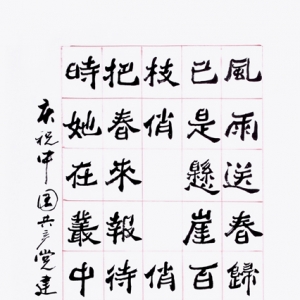 風雨送春歸
已是懸崖百
枝俏俏
把春來報待
時她在叢中
庆祝中国共产党建